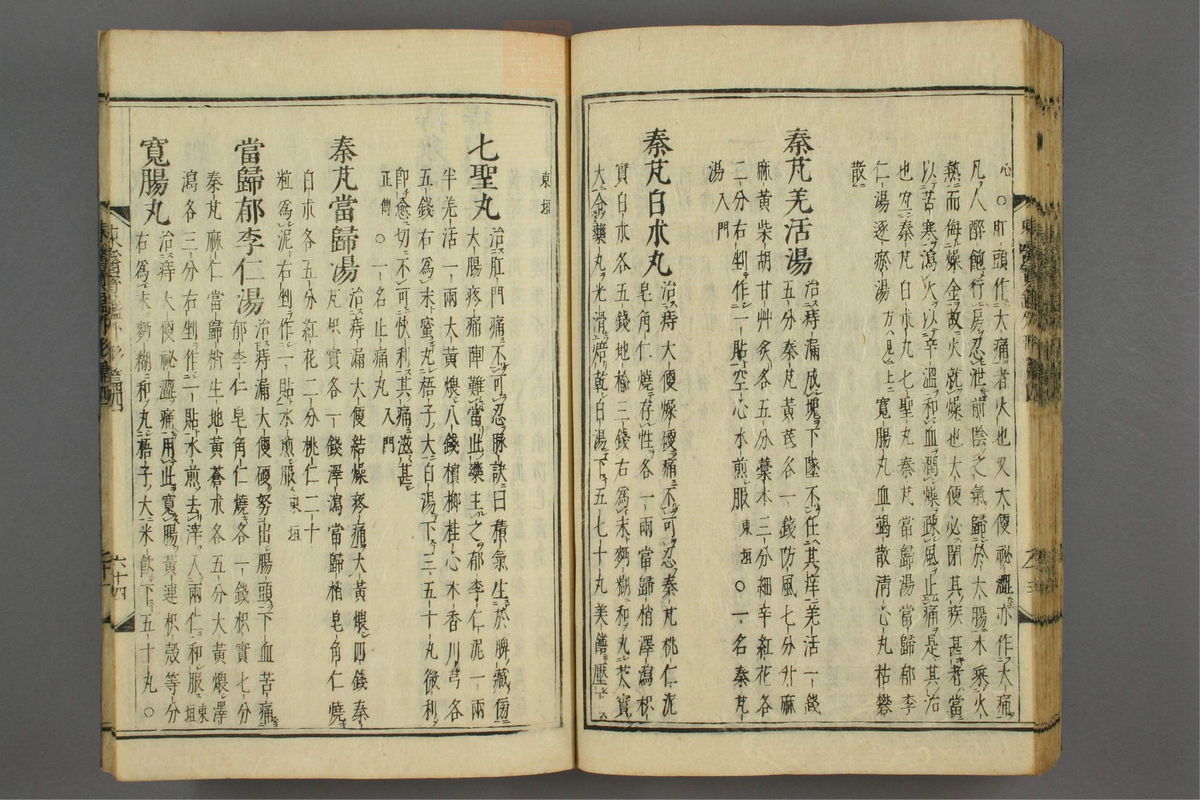 心○肛頭作大痛者火也又大便祕澁亦作大痛
凡人醉飽行房忍泄前陰之氣歸於大腸木乘火
熱而侮燥金故火就燥也大便必閉其疾甚者當
以苦寒瀉火以辛溫和血潤燥踈風止痛是其治
也宜秦芃白朮丸七聖丸秦芃當歸湯當歸郁李
仁湯逐瘀湯方見上寬腸丸血竭散淸心丸枯礬
散
秦芃羌活湯治痔漏成塊下墜不任其痒羌活一錢
五分秦芃黃芪各一錢防風七分升麻
麻黃柴胡甘艸炙各五分藁本三分細辛紅花各
二分右剉作一貼空心水煎服東垣○一名秦芃
湯入門
秦芃白朮丸治痔大便燥硬痛不可忍秦芃桃仁泥
皂角仁燒存性各一兩當歸梢澤瀉枳
實白朮各五錢地楡三錢右爲末麪糊和丸芡實
大令藥丸光滑焙乾白湯下五七十丸美饍壓下
東垣
七聖丸治肛門痛不可忍脉訣曰積氣生於脾臟傍
大腸疼痛陣難當此藥主之郁李仁泥一兩
半羌活一兩大黃煨八錢檳榔桂心木香川芎各
五錢右爲末蜜丸梧子大白湯下三五十丸微利
卽愈切不可快利其痛滋甚
正傳○一名止痛丸入門
秦芃當歸湯治痔漏大便結燥疼痛大黃煨四錢秦
芃枳實各一錢澤瀉當歸梢皂角仁燒
白朮各五分紅花二分桃仁二十
粒爲泥右剉作一貼水煎服東垣
當歸郁李仁湯治痔漏大便硬努出腸頭下血苦痛
郁李仁皂角仁燒各一錢枳實七分
秦芃麻仁當歸梢生地黃蒼朮各五分大黃煨澤
瀉各三分右剉作一貼水煎去滓入兩仁和服東垣
寬腸丸治痔大便祕澁痛用此寬腸黃連枳殼等分
右爲末麪糊和丸梧子大米飮下五十丸○
東醫寶鑑外形篇四
六十四